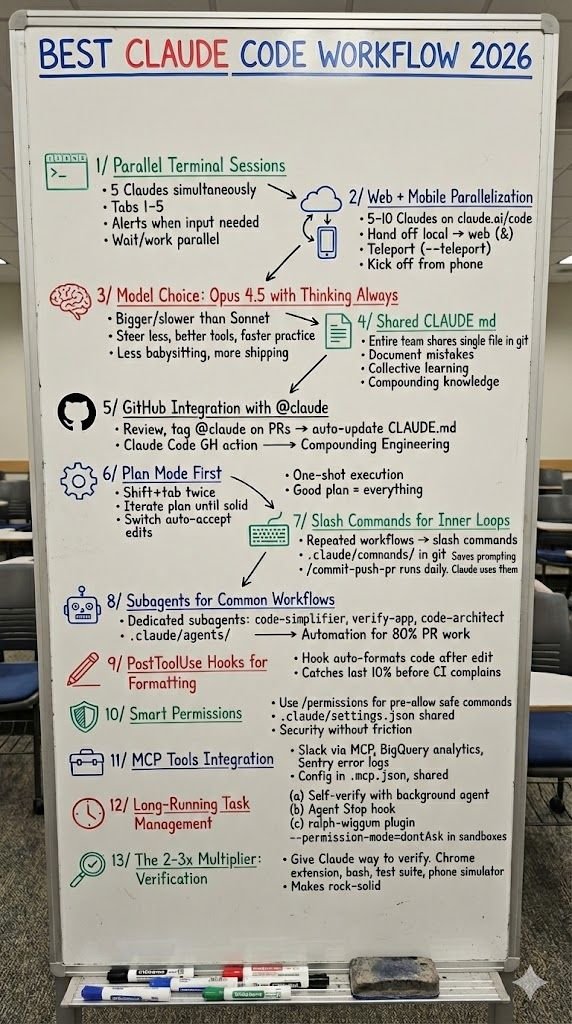 BEST CLAUDE CODE WORKFLOW 2026
1/ Parallel Terminal Sessions
• 5 Claudes simultaneously
• Tabs 1-5
• Alerts when input needed
• Wait/work parallel
2/ Web + Mobile Parallelization
• 5-10 Claudes on claude.ai/code
• Hand off local → web (&)
• Teleport (--teleport)
• Kick off from phone
3/ Model Choice: Opus 4.5 with Thinking Always
• Bigger/slower than Sonnet
• Steer less, better tools, faster practice
• Less babysitting, more shipping
4/ Shared CLAUDE md
• Entire team shares single file in git
• Document mistakes
• Collective learning
• Compounding knowledge
5/ GitHub Integration with @claude
• Review, tag @claude on PRs → auto-update CLAUDE.md
• Claude Code GH action → Compounding Engineering
6/ Plan Mode First
• Shift+tab twice
• Iterate plan until solid
• Switch auto-accept
edits
• One-shot execution
• Good plan = everything
7/ Slash Commands for Inner Loops
• Repeated workflows → slash commands
• .claude/commands/ in git Saves prompting
• /commit-push-pr runs daily. Claude uses them
8/ Subagents for Common Workflows
• Dedicated subagents: code-simplifier, verify-app, code-architect
• .claude/agents/ → Automation for 80% PR work
9/ PostToolUse Hooks for
Formatting
• Hook auto-formats code after edit
• Catches last 10% before CI complains
10/ Smart Permissions
• Use /permissions for pre-allow safe commands
• .claude/settings.json shared
• Security without friction
11/ MCP Tools Integration
• Slack via MCP, BigQuery analytics,
Sentry error logs
• Config in .mcp.json, shared
12/ Long-Running Task
Management
(a) Self-verify with background agent
(b) Agent Stop hook
(c) ralph-wiggum plugin
--permission-mode=dontAsk in sandboxes
13/ The 2-3x Multiplier:
Verification
• Give Claude way to verify. Chrome
extension, bash, test suite, phone simulator
• Makes rock-solid